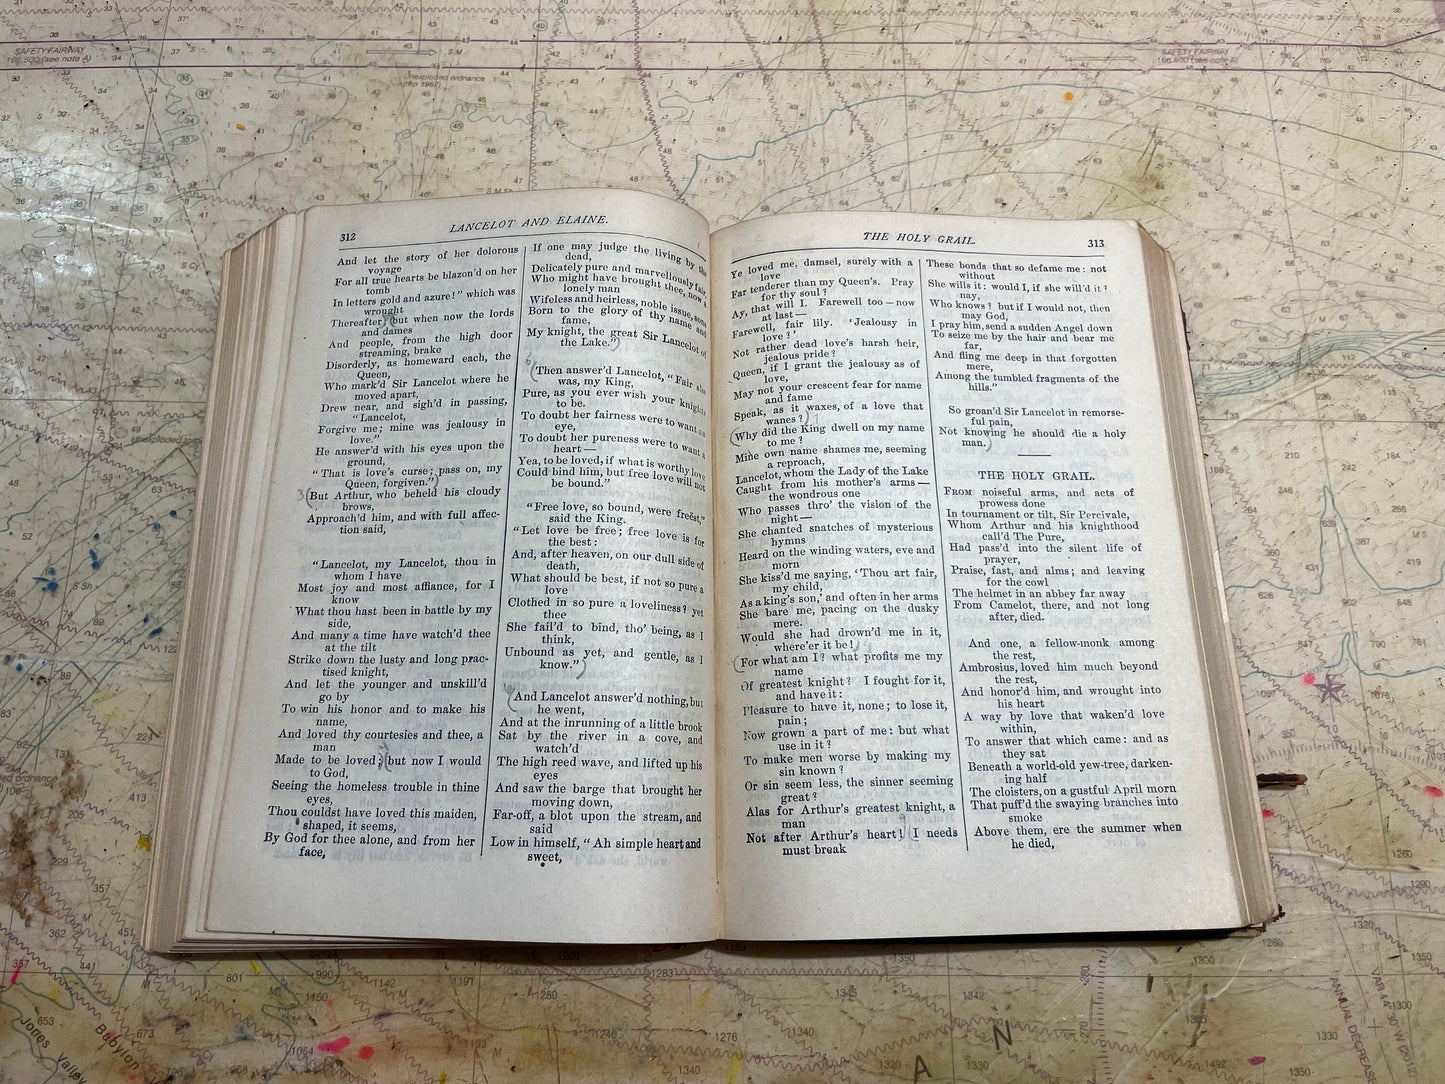 312
LANCELOT AND ELAINE.
And let the story of her dolorous
voyage
For all true hearts be blazon'd on her
tomb
In letters gold and azure!" which was
wrought
Thereafter; but when now the lords
and dames
And people, from the high door
streaming, brake
Disorderly, as homeward each, the
Queen,
Who mark'd Sir Lancelot where he
moved apart,
Drew near, and sigh'd in passing,
"Lancelot,
Forgive me; mine was jealousy in
love."
He answer'd with his eyes upon the
ground,
"That is love's curse; pass on, my
Queen, forgiven."
But Arthur, who beheld his cloudy
brows,
Approach'd him, and with full affec-
tion said,
"Lancelot, my Lancelot, thou in
whom I have
Most joy and most affiance, for I
know
What thou hast been in battle by my
side,
And many a time have watch'd thee
at the tilt
Strike down the lusty and long prac-
tised knight,
And let the younger and unskill'd
go by
To win his honor and to make his
name,
And loved thy courtesies and thee, a
man
Made to be loved; but now I would
to God,
Seeing the homeless trouble in thine
eyes,
Thou couldst have loved this maiden,
shaped, it seems,
By God for thee alone, and from her
face,
If one may judge the living by the
dead,
Delicately pure and marvellously fair,
Who might have brought thee, now a
lonely man
Wifeless and heirless, noble issue, sons
Born to the glory of thy name and
fame,
My knight, the great Sir Lancelot of
the Lake."
Then answer'd Lancelot, "Fair she
was, my King,
Pure, as you ever wish your knights
to be.
To doubt her fairness were to want an
eye,
To doubt her pureness were to want a
heart—
Yea, to be loved, if what is worthy love
Could bind him, but free love will not
be bound."
"Free love, so bound, were freëst,"
said the King.
"Let love be free; free love is for
the best:
And, after heaven, on our dull side of
death,
What should be best, if not so pure a
love
Clothed in so pure a loveliness? yet
thee
She fail'd to bind, tho' being, as I
think,
Unbound as yet, and gentle, as I
know."
And Lancelot answer'd nothing, but
he went,
And at the inrunning of a little brook
Sat by the river in a cove, and
watch'd
The high reed wave, and lifted up his
eyes
And saw the barge that brought her
moving down,
Far-off, a blot upon the stream, and
said
Low in himself, "Ah simple heart and
sweet,
THE HOLY GRAIL.
313
Ye loved me, damsel, surely with a
love
Far tenderer than my Queen's. Pray
for thy soul?
Ay, that will I. Farewell too—now
at last—
Farewell, fair lily. 'Jealousy in
love?'
Not rather dead love's harsh heir,
jealous pride?
Queen, if I grant the jealousy as of
love,
May not your crescent fear for name
and fame
Speak, as it waxes, of a love that
wanes?
Why did the King dwell on my name
to me?
Mine own name shames me, seeming
a reproach,
Lancelot, whom the Lady of the Lake
Caught from his mother's arms—
the wondrous one
Who passes thro' the vision of the
night—
She chanted snatches of mysterious
hymns
Heard on the winding waters, eve and
morn
She kiss'd me saying, 'Thou art fair,
my child,
As a king's son,' and often in her arms
She bare me, pacing on the dusky
mere.
Would she had drown'd me in it,
where'er it be!
For what am I? what profits me my
name
Of greatest knight? I fought for it,
and have it:
Pleasure to have it, none; to lose it,
pain;
Now grown a part of me: but what
use in it?
To make men worse by making my
sin known?
Or sin seem less, the sinner seeming
great?
Alas for Arthur's greatest knight, a
man
Not after Arthur's heart! I needs
must break
These bonds that so defame me: not
without
She wills it: would I, if she will'd it?
nay,
Who knows? but if I would not, then
may God,
I pray him, send a sudden Angel down
To seize me by the hair and bear me
far,
And fling me deep in that forgotten
mere,
Among the tumbled fragments of the
hills."
So groan'd Sir Lancelot in remorse-
ful pain,
Not knowing he should die a holy
man.
THE HOLY GRAIL.
FROM noiseful arms, and acts of
prowess done
In tournament or tilt, Sir Percivale,
Whom Arthur and his knighthood
call'd The Pure,
Had pass'd into the silent life of
prayer,
Praise, fast, and alms; and leaving
for the cowl
The helmet in an abbey far away
From Camelot, there, and not long
after, died.
And one, a fellow-monk among
the rest,
Ambrosius, loved him much beyond
the rest,
And honor'd him, and wrought into
his heart
A way by love that waken'd love
within,
To answer that which came: and as
they sat
Beneath a world-old yew-tree, darken-
ing half
The cloisters, on a gustful April morn
That puff'd the swaying branches into
smoke
Above them, ere the summer when
he died,
SAFETY FAIRWAY
166.500 (see note A)
SAFETY FAIRWAY
166.500 (see note A)
Unexploded ordnance
Jones Valley
Babylon